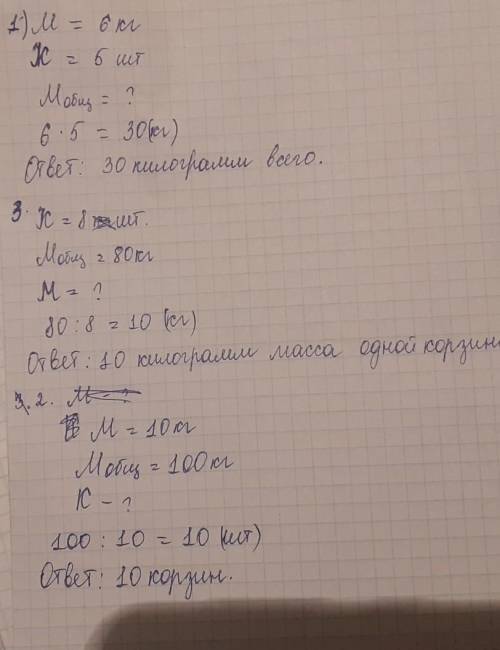 1) М = 6 кг
К = 6 шт
Мобщ = ?
6 · 5 = 30(кг)
Ответ: 30 килограмм всего.
3. К = 8 шт.
Мобщ = 80кг
М = ?
80 : 8 = 10 (кг)
Ответ: 10 килограмм масса одной корзин
2. М - ?
М = 10кг
Мобщ = 100кг
К - ?
100 : 10 = 10 (шт)
Ответ: 10 корзин.